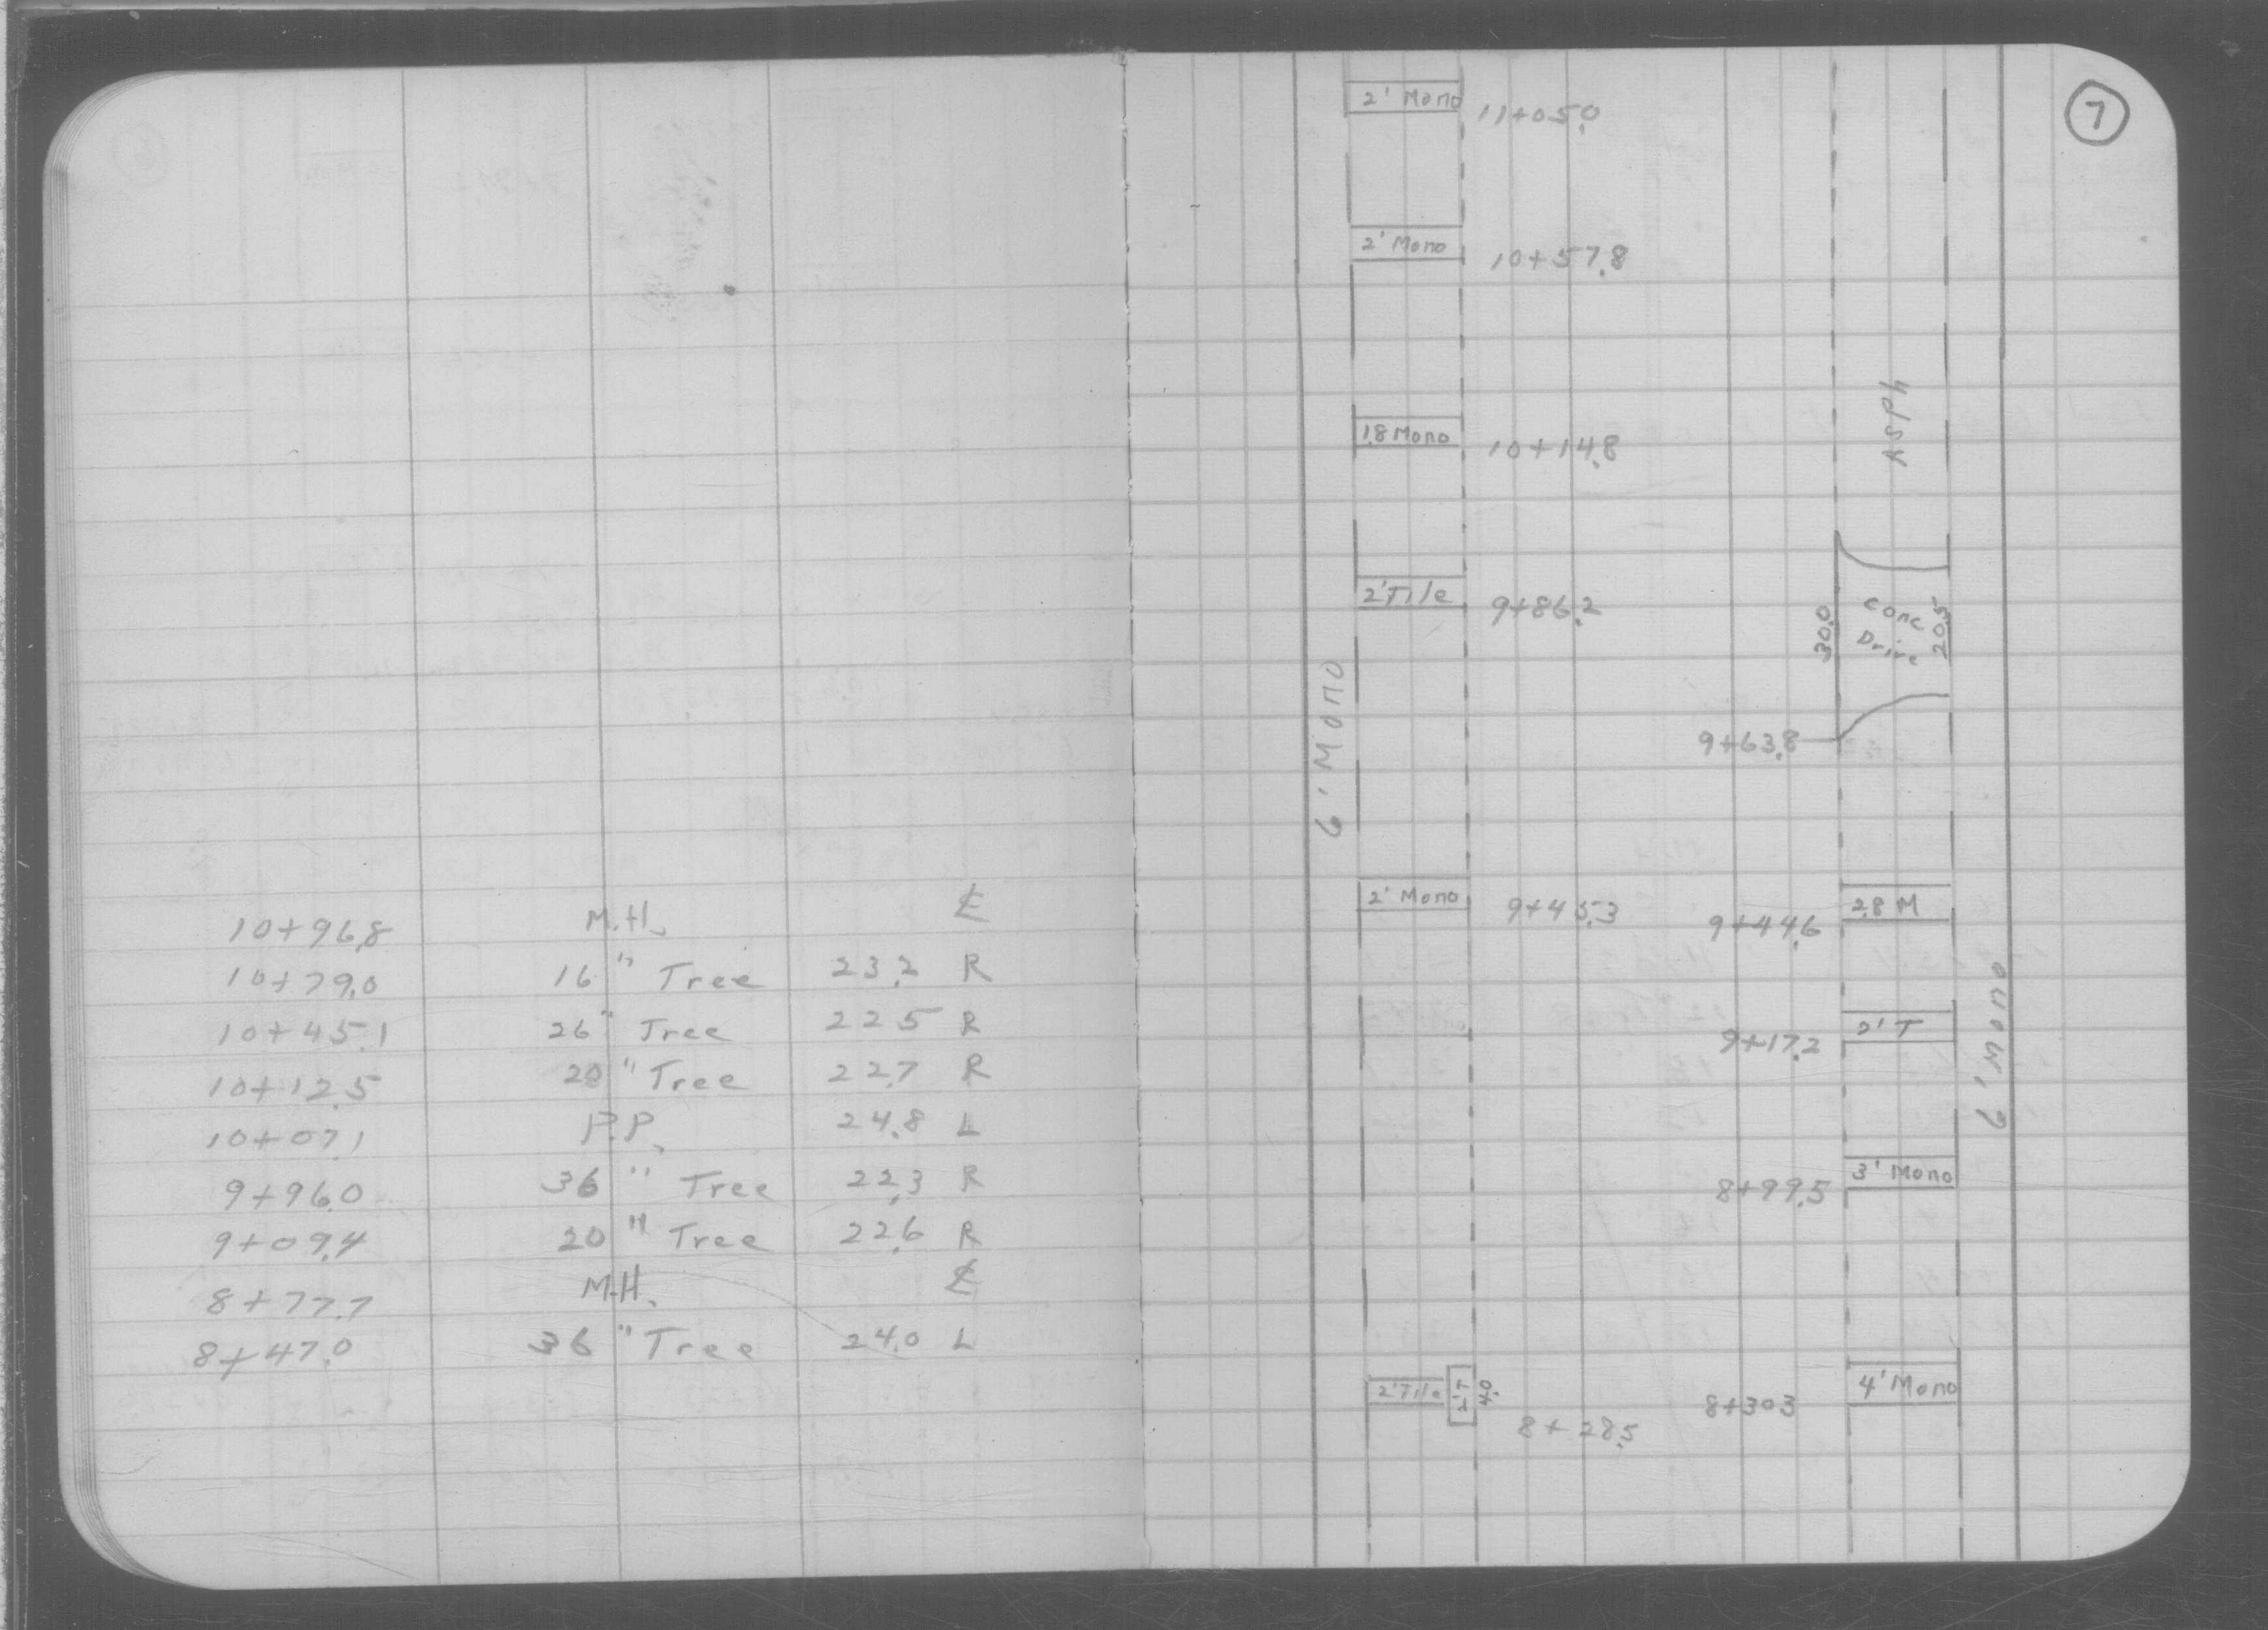 10+96.8 M.H. ℄
10+79.0 16" Tree 23.2 R
10+45.1 26" Tree 22.5 R
10+12.5 20" Tree 22.7 R
10+07.1 P.P. 24.8 L
9+96.0 36" Tree 22.3 R
9+09.4 20" Tree 22.6 R
8+77.7 M.H. ℄
8+47.0 36" Tree 24.0 L
7
2' Mono 11+05.0
2' Mono 10+57.8
1.8 Mono 10+14.8
Asph
2' Tile 9+86.2
30.0 Conc Drive 20.5
6' Mono
9+63.8
2' Mono 9+45.3 9+44.6 2.8 M
9+17.2 2' T
6' Mono
8+99.5 3' Mono
2' Tile 2' T 4.0 8+28.5 8+30.3 4' Mono